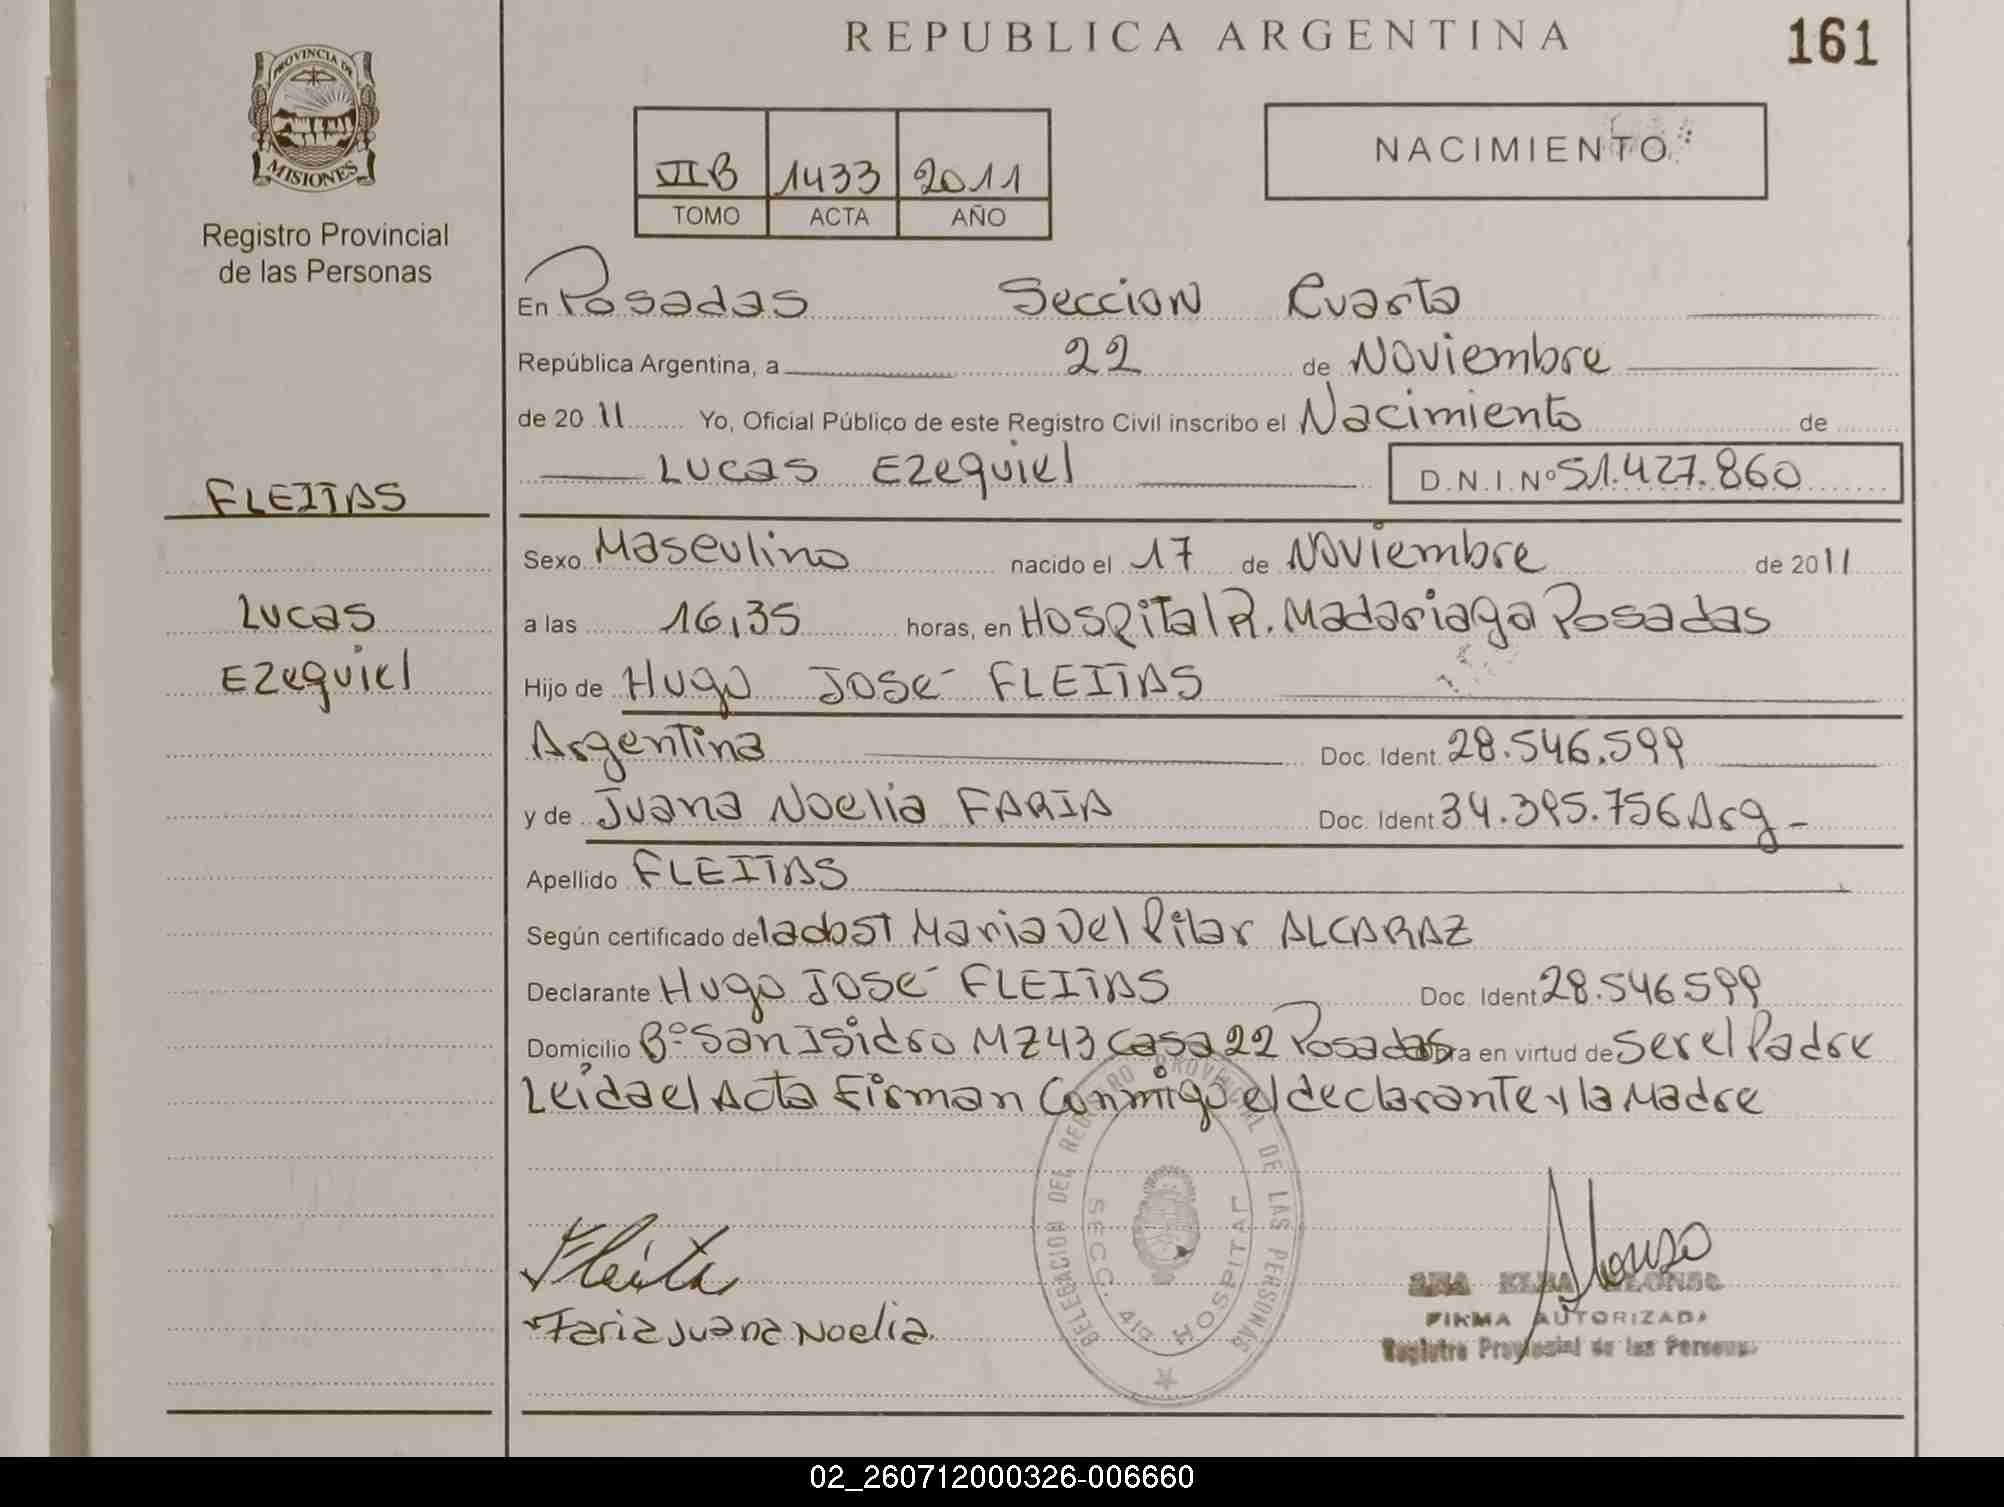 REPUBLICA ARGENTINA
161
PROVINCIA DE
MISIONES
Registro Provincial
de las Personas
VIIB 1433 2011
TOMO ACTA AÑO
NACIMIENTO
En Posadas Seccion Cuarta
República Argentina, a 22 de Noviembre
de 2011 Yo, Oficial Público de este Registro Civil inscribo el Nacimiento de
Lucas Ezequiel D.N.I.Nº 51.427.860
FLEITAS
Lucas
Ezequiel
Sexo Masculino nacido el 17 de Noviembre de 2011
a las 16,35 horas, en Hospital R. Madariaga Posadas
Hijo de Hugo José FLEITAS
Argentina Doc. Ident. 28.546.599
y de Juana Noelia FARIA Doc. Ident. 34.395.756 Arg-
Apellido FLEITAS
Según certificado de la obst Maria Del Pilar ALCARAZ
Declarante Hugo José FLEITAS Doc. Ident. 28.546599
Domicilio Bº San Isidro MZ43 Casa 22 Posadas Obra en virtud de Ser el Padre
Leida el Acta Firman Conmigo el declarante y la Madre
Fleita
Faria Juana Noelia.
DELEGACION DEL REGISTRO PROVINCIAL DE LAS PERSONAS
SECC. 4ta HOSPITAL
Alonso
ANA ELBA ALONSO
FIRMA AUTORIZADA
Registro Provincial de las Personas
02_260712000326-006660